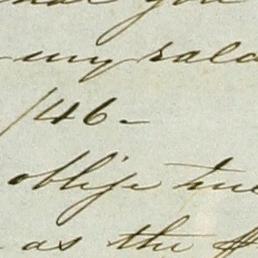 that you
my sala
/46-
oblige me
as the